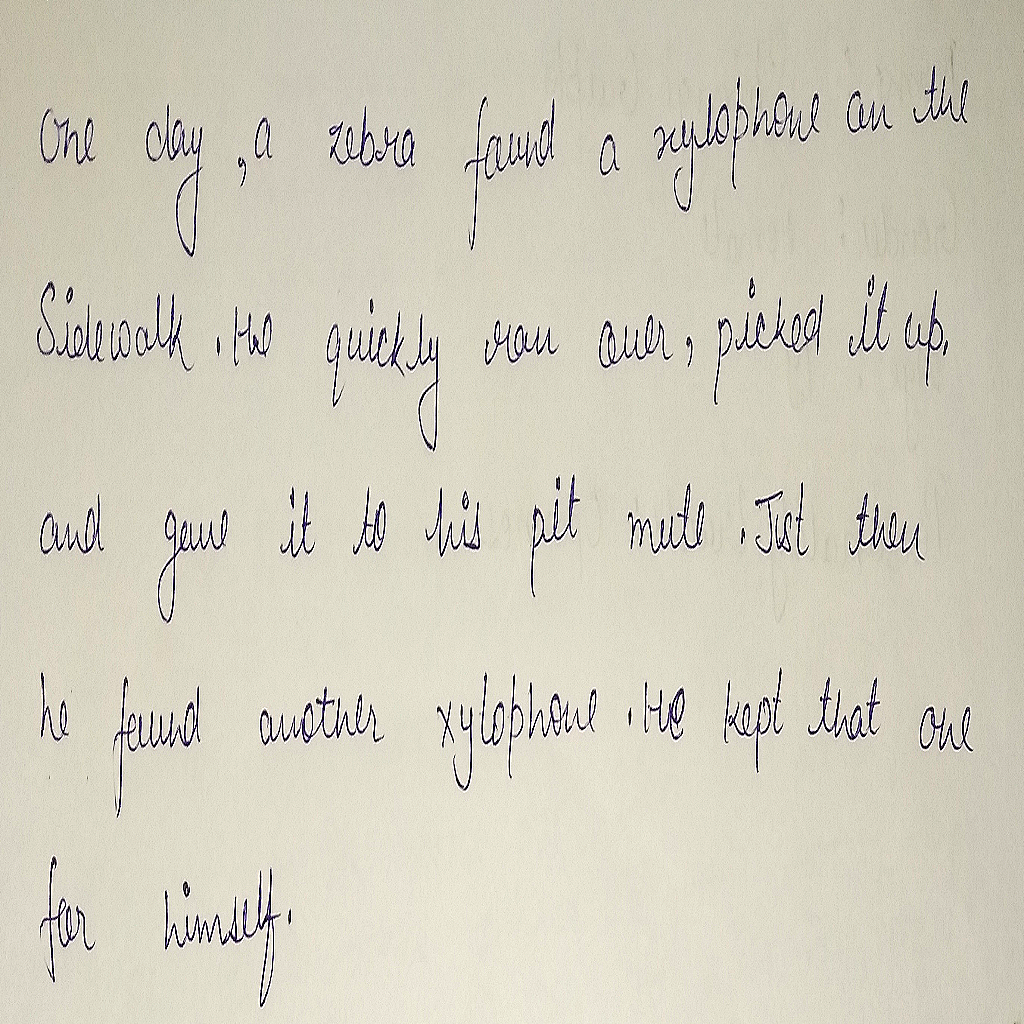 One day, a zebra found a xylophone on the
Sidewalk. He quickly ran over, picked it up,
and gave it to his pit mule. Just then
he found another xylophone. He kept that one
for himself.